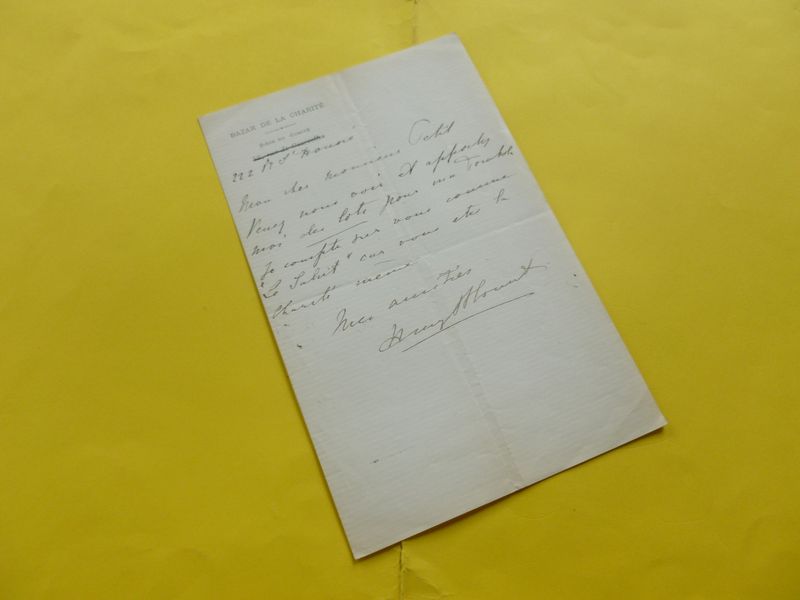 BAZAR DE LA CHARITÉ
222 R St Honoré
Mon cher monsieur Petit
Venez nous voir et apportez
moi des lots pour ma Tombola
Je compte sur vous comme
"Le Salut" car vous etes la
Charité même
Mes amitiés
Henry Blount